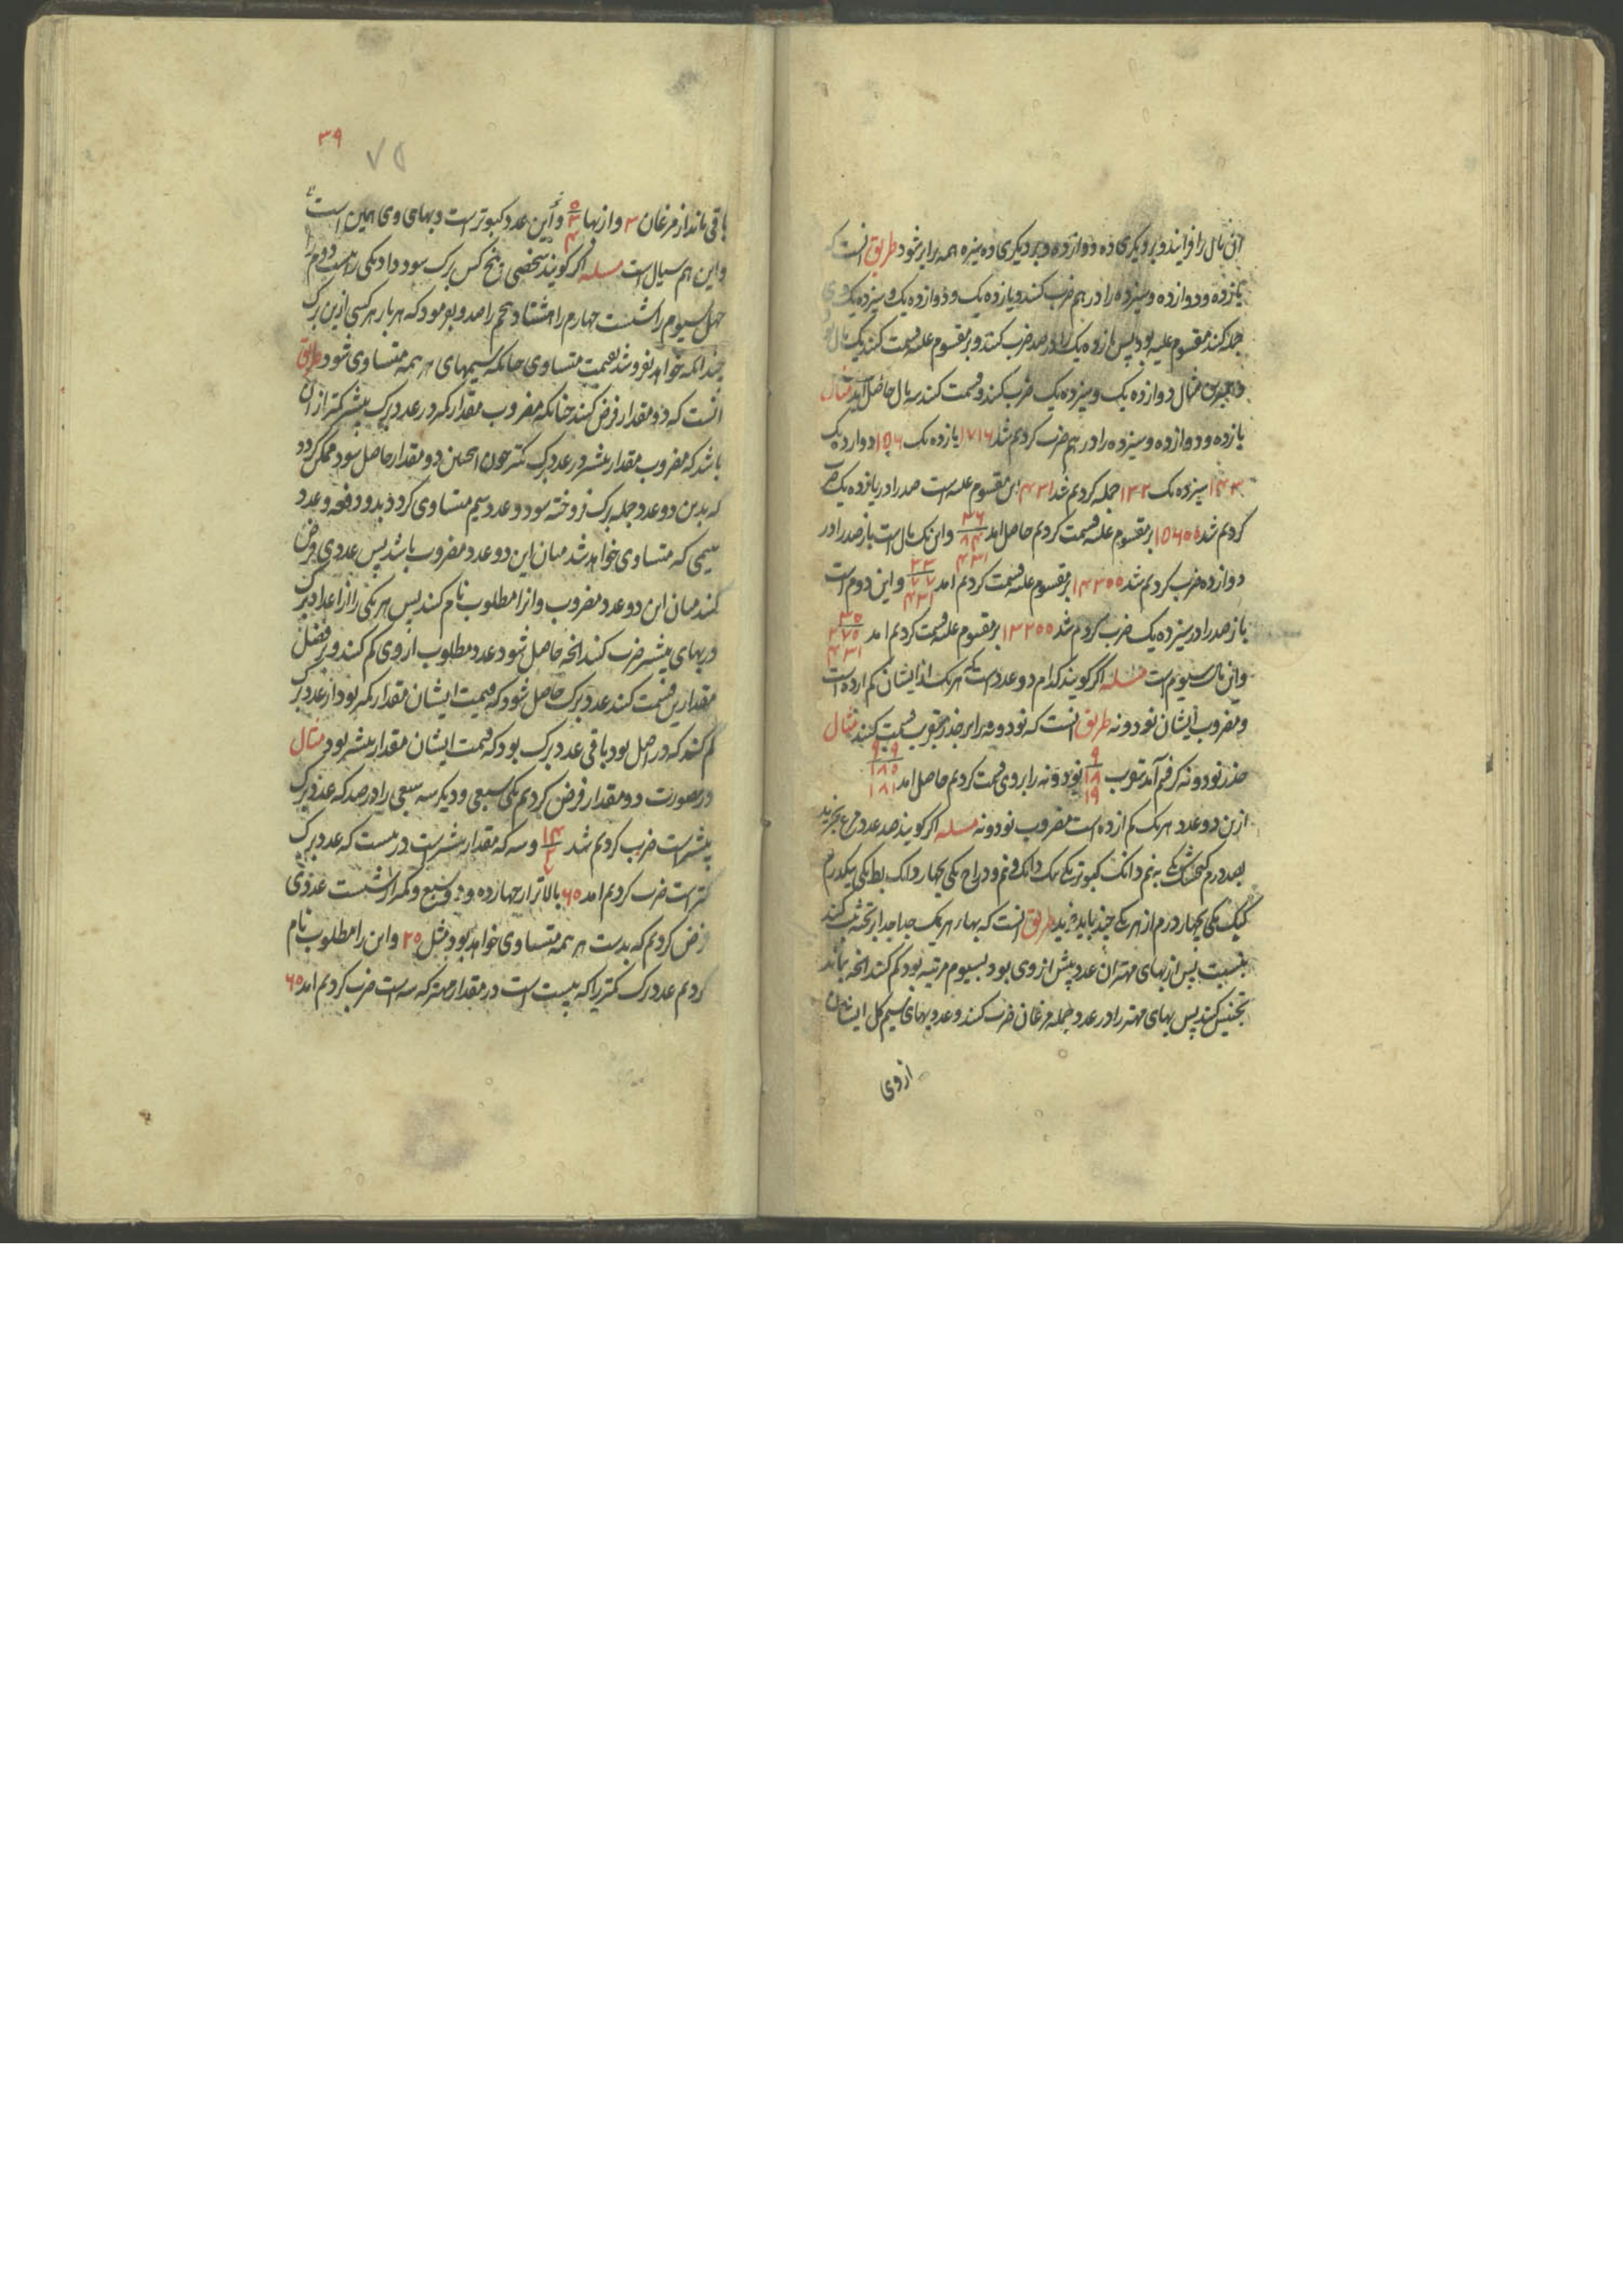 این مال را فزایند و بر دیگری ده دوازده و بر دیگری ده سیزه همه برابر شود طریق انست که
یازده و دوازده و سیزده را در هم ضرب کنند و یازده یک و دوازده یک و سیزده یک
جمله کند مقسوم علیه بود پس یازده یک را در صد ضرب کنند و بر مقسوم علیه قسمت کنند یک مال بود
مثال دوازده یک و سیزده یک ضرب کنند و قسمت کنند سه مال حاصل اید مثال
یازده و دوازده و سیزده را در هم ضرب کردیم شد ۱۷۱۶ یازده یک ۱۵۶ دوازده یک
۱۴۳ سیزده یک ۱۳۲ جمله کردیم شد ۴۳۱ این مقسوم علیه است صد را در یازده یک ضرب
کردیم شد ۱۵۶۰۰ بر مقسوم علیه قسمت کردیم حاصل امد ۳۶ ۸۴ ۴۳۱ و این یک مال است باز صد را در
دوازده ضرب کردیم شد ۱۴۳۰۰ بر مقسوم علیه قسمت کردیم امد ۳۳ ۷۷ ۴۳۱ و این دوم است
باز صد را در سیزده یک ضرب کردیم شد ۱۳۲۰۰ بر مقسوم علیه قسمت کردیم امد ۳۰ ۲۷۰ ۴۳۱
و این مال سیوم است مسله اکر کویند کدام دو عدد است که هر یک از ایشان کم از ده است
و مضروب ایشان نود و نه طریق انست که نود و نه را بر جذر تقریب قسمت کنند مثال
جذر نود و نه کرفتیم آمد بتقریب ۹ ۱۸ ۱۹ نود و نه را بر وی قسمت کردیم حاصل امد ۹ ۹۰ ۱۸۰ ۱۸۱
ازین دو عدد هر یک کم از ده است مضروب نود و نه مسله اکر کویند صد عدد مرغ بخرید
بصد درم کنجشک یکی به نیم دانک کبوتر یکی یک دانک و نیم و دراج یکی بچهار دانک بط یکی بیکدرم
کبک یکی بچهار درم از هر یکی چند باید خرید طریق انست که بهاء هر یک جدا جدا بر تخته ثبت کند
بنسبت پس از بهای مهتر ان عدد پیش از وی بود بسیوم مرتبه بود کم کند انچه بماند
تجنیس کنند پس بهای مهتر را در عدد جمله مرغان ضرب کنند و عدد بهای سیم کل ایشان
ازوی
۳۹
۷۵
باقی ماند از مرغان ۳ و از بها ۰ ۳ ۴ و این عدد کبوتر است و بهای وی همین است
و این هم سیال است مسله اکر کویند شخصی پنج کس برک سود داد یکی را بیست دوم را
چهل سیوم را شست چهارم را هشتاد پنجم را صد و بفرمود که هر بار هر کسی ازین برک
چندانکه خواهد بفروشد بقیمت متساوی چنانکه سیمهای هر همه متساوی شود طریق
انست که دو مقدار فرض کنند چنانکه مضروب مقدار کمتر در عدد برک بیشتر کمتر از ان
باشد که مضروب مقدار بیشتر در عدد برک کمتر چون اینچنین دو مقدار حاصل شود ممکن کردد
که بدین دو عدد جمله برک فروخته سود و عدد سیم متساوی کردد بدو دفعه و عدد
سیمی که متساوی خواهد شد میان این دو عدد مضروب باشد پس عددی فرض
کنند میان این دو عدد مضروب و انرا مطلوب نام کنند پس هر یکی را از اعداد برک
در بهای بیشتر ضرب کنند انچه حاصل شود عدد مطلوب از وی کم کنند و بر فضل
مقدارین قسمت کنند عدد برک حاصل شود که قیمت ایشان مقدار کمتر بود از عدد برک
کم کنند که در اصل بود باقی عدد برک بود که قیمت ایشان مقدار بیشتر بود مثال
درین صورت دو مقدار فرض کردیم یکی سبعی و دیگر سه سبعی را در صد که عدد برک
بیشتر است ضرب کردیم شد ۱۴ ۲ ۷ و سه که مقدار بیشتر است در بیست که عدد برک
کمتر است ضرب کردیم امد ۶۰ بالاتر از چهارده و دو سبع و کمتر از شست عددی
فرض کردیم که بدست هر همه متساوی خواهد بود مثل ۲۰ و این را مطلوب نام
کردیم عدد برک کمتر را که بیست است در مقدار مهتر که سه است ضرب کردیم امد ۶۰